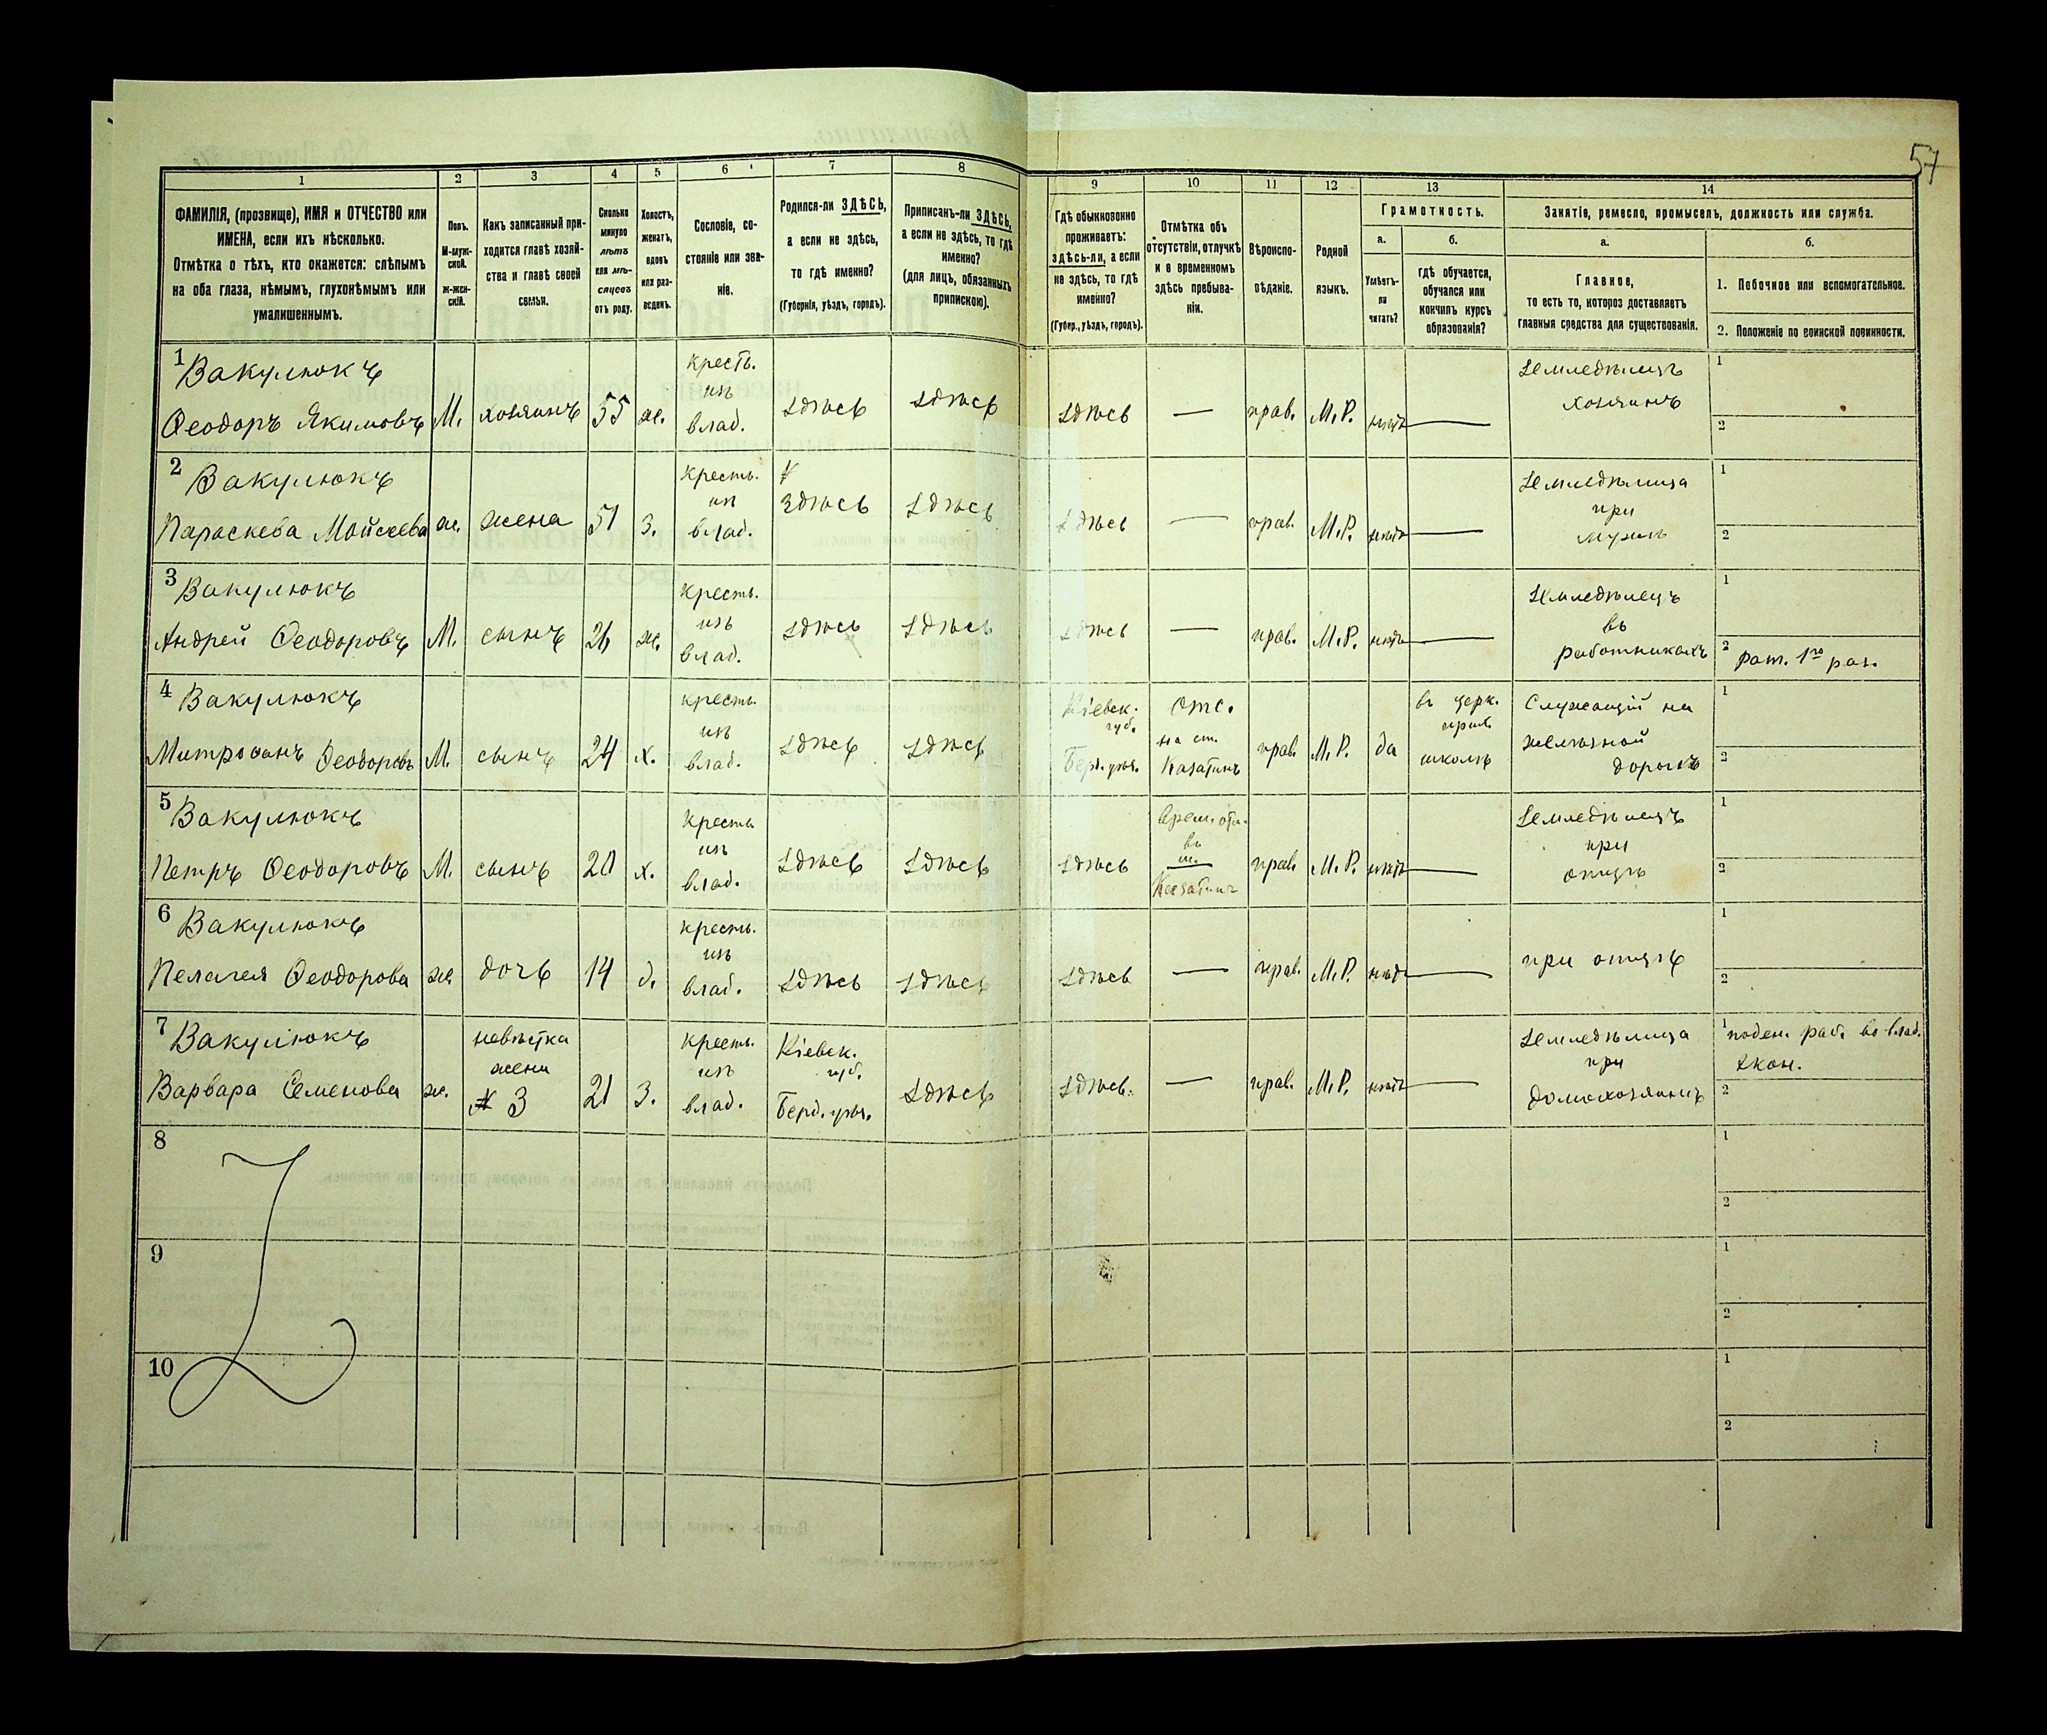 57
1
2
3
4
5
6
7
8
9
10
11
12
13
14
ФАМИЛІЯ, (прозвище), ИМЯ и ОТЧЕСТВО или
ИМЕНА, если ихъ нѣсколько.
Отмѣтка о тѣхъ, кто окажется: слѣпымъ
на оба глаза, нѣмымъ, глухонѣмымъ или
умалишеннымъ.
Полъ.
М-муж-
ской.
ж-жен-
скій.
Какъ записанный при-
ходится главѣ хозяй-
ства и главѣ своей
семьи.
Сколько
минуло
лѣтъ
или мѣ-
сяцевъ
отъ роду.
Холостъ,
женатъ,
вдовъ
или раз-
веденъ.
Сословіе, со-
стояніе или зва-
ніе.
Родился-ли ЗДѢСЬ,
а если не здѣсь,
то гдѣ именно?
(Губернія, уѣздъ, городъ).
Приписанъ-ли ЗДѢСЬ,
а если не здѣсь, то гдѣ
именно?
(для лицъ, обязанныхъ
припискою).
Гдѣ обыкновенно
проживаетъ:
здѣсь-ли, а если
не здѣсь, то гдѣ
именно?
(Губер., уѣздъ, городъ).
Отмѣтка объ
отсутствіи, отлучкѣ
и о временномъ
здѣсь пребыва-
ніи.
Вѣроиспо-
вѣданіе.
Родной
языкъ.
Грамотность.
а.
Умѣетъ-
ли
читать?
б.
гдѣ обучается,
обучался или
кончилъ курсъ
образованія?
Занятіе, ремесло, промыселъ, должность или служба.
а.
Главное,
то есть то, которое доставляетъ
главныя средства для существованія.
б.
1. Побочное или вспомогательное.
2. Положеніе по воинской повинности.
1 Вакулюкъ
Ѳеодоръ Якимовъ
М.
хозяинъ
55
ж.
кресть.
изъ
влад.
здѣсь
здѣсь
здѣсь
—
прав.
М.Р.
нѣтъ
—
Земледѣлецъ
хозяинъ
1
2
2 Вакулюкъ
Параскева Мойсеева
ж.
жена
51
З.
кресть.
изъ
влад.
здѣсь
здѣсь
здѣсь
—
прав.
М.Р.
нѣтъ
—
Земледѣлица
при
мужѣ
1
2
3 Вакулюкъ
Андрей Ѳеодоровъ
М.
сынъ
26
ж.
кресть.
изъ
влад.
здѣсь
здѣсь
здѣсь
—
прав.
М.Р.
нѣтъ
—
Земледѣлецъ
въ
работникахъ
1
2 рат. 1го раз.
4 Вакулюкъ
Митрофанъ Ѳеодоровъ
М.
сынъ
24
х.
кресть.
изъ
влад.
здѣсь
здѣсь
Кіевск.
губ.
Берд. уѣз.
отс.
на ст.
Казатинъ
прав.
М.Р.
да
въ церк.
прих.
школѣ
Служащій на
желѣзной
дорогѣ
1
2
5 Вакулюкъ
Петръ Ѳеодоровъ
М.
сынъ
20
х.
кресть.
изъ
влад.
здѣсь
здѣсь
здѣсь
врем. отл.
въ
м.
Казатинъ
прав.
М.Р.
нѣтъ
—
Земледѣлецъ
при
отцѣ
1
2
6 Вакулюкъ
Пелагея Ѳеодорова
ж.
дочь
14
д.
кресть.
изъ
влад.
здѣсь
здѣсь
здѣсь
—
прав.
М.Р.
нѣтъ
—
при отцѣ
1
2
7 Вакулюкъ
Варвара Семенова
ж.
невѣстка
жена
№ 3
21
З.
кресть.
изъ
влад.
Кіевск.
губ.
Берд. уѣз.
здѣсь
здѣсь.
—
прав.
М.Р.
нѣтъ
—
Земледѣлица
при
домохозяинѣ
1 поден. раб. въ влад.
экон.
2
8
1
2
9
1
2
10
1
2